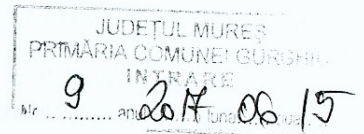 JUDEŢUL MUREŞ
PRIMĂRIA COMUNEI GURGHIU
INTRARE
Nr. 9 anul 2017 luna 06 ziua 15